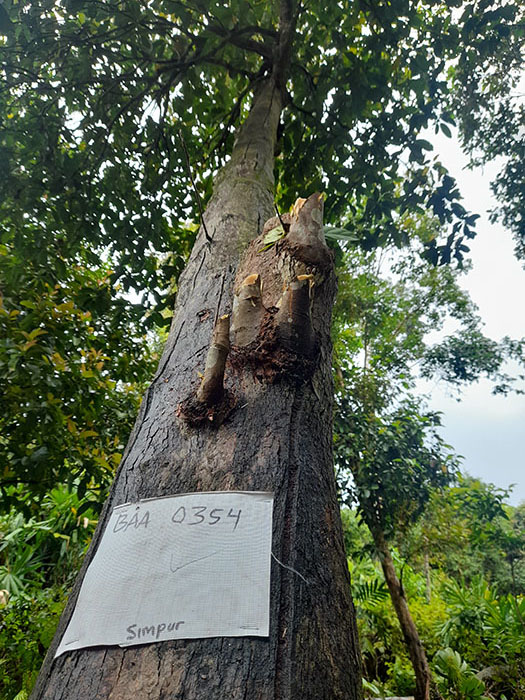 BAA 0354
Simpur